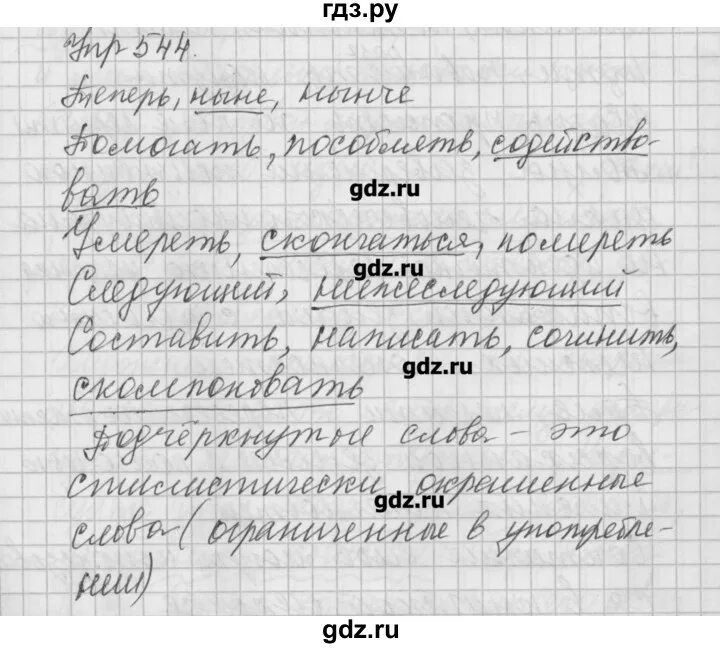 гдз.ру
Упр 544.
Теперь, ныне, нынче
Помогать, пособлять, содейство-
вать
gdz.ru
Умереть, скончаться, помереть
gdz.ru
Следующий, нижеследующий
Составить, написать, сочинить,
gdz.ru
скомпоновать
Подчёркнутые слова - это
стилистически окрашенные
gdz.ru
слова (ограниченные в употребле-
нии)
gdz.ru